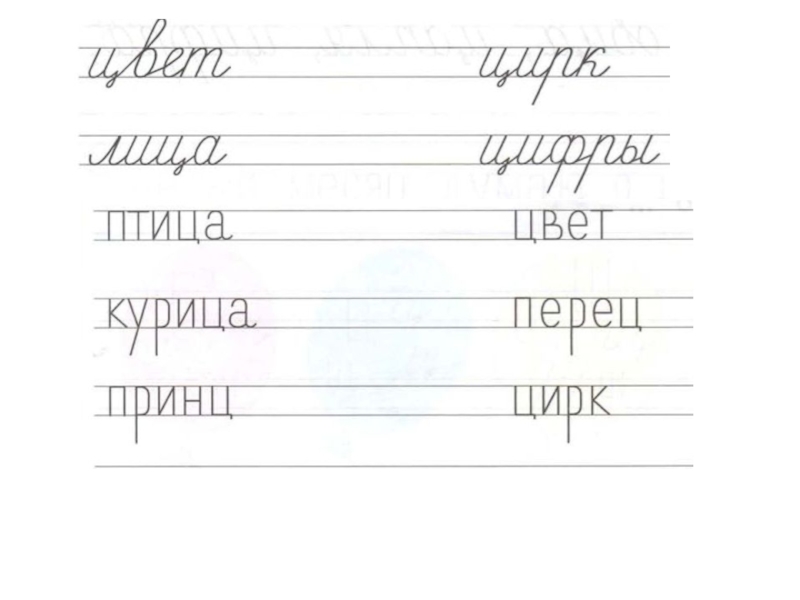 цвет цирк
лица цифры
птица цвет
курица перец
принц цирк